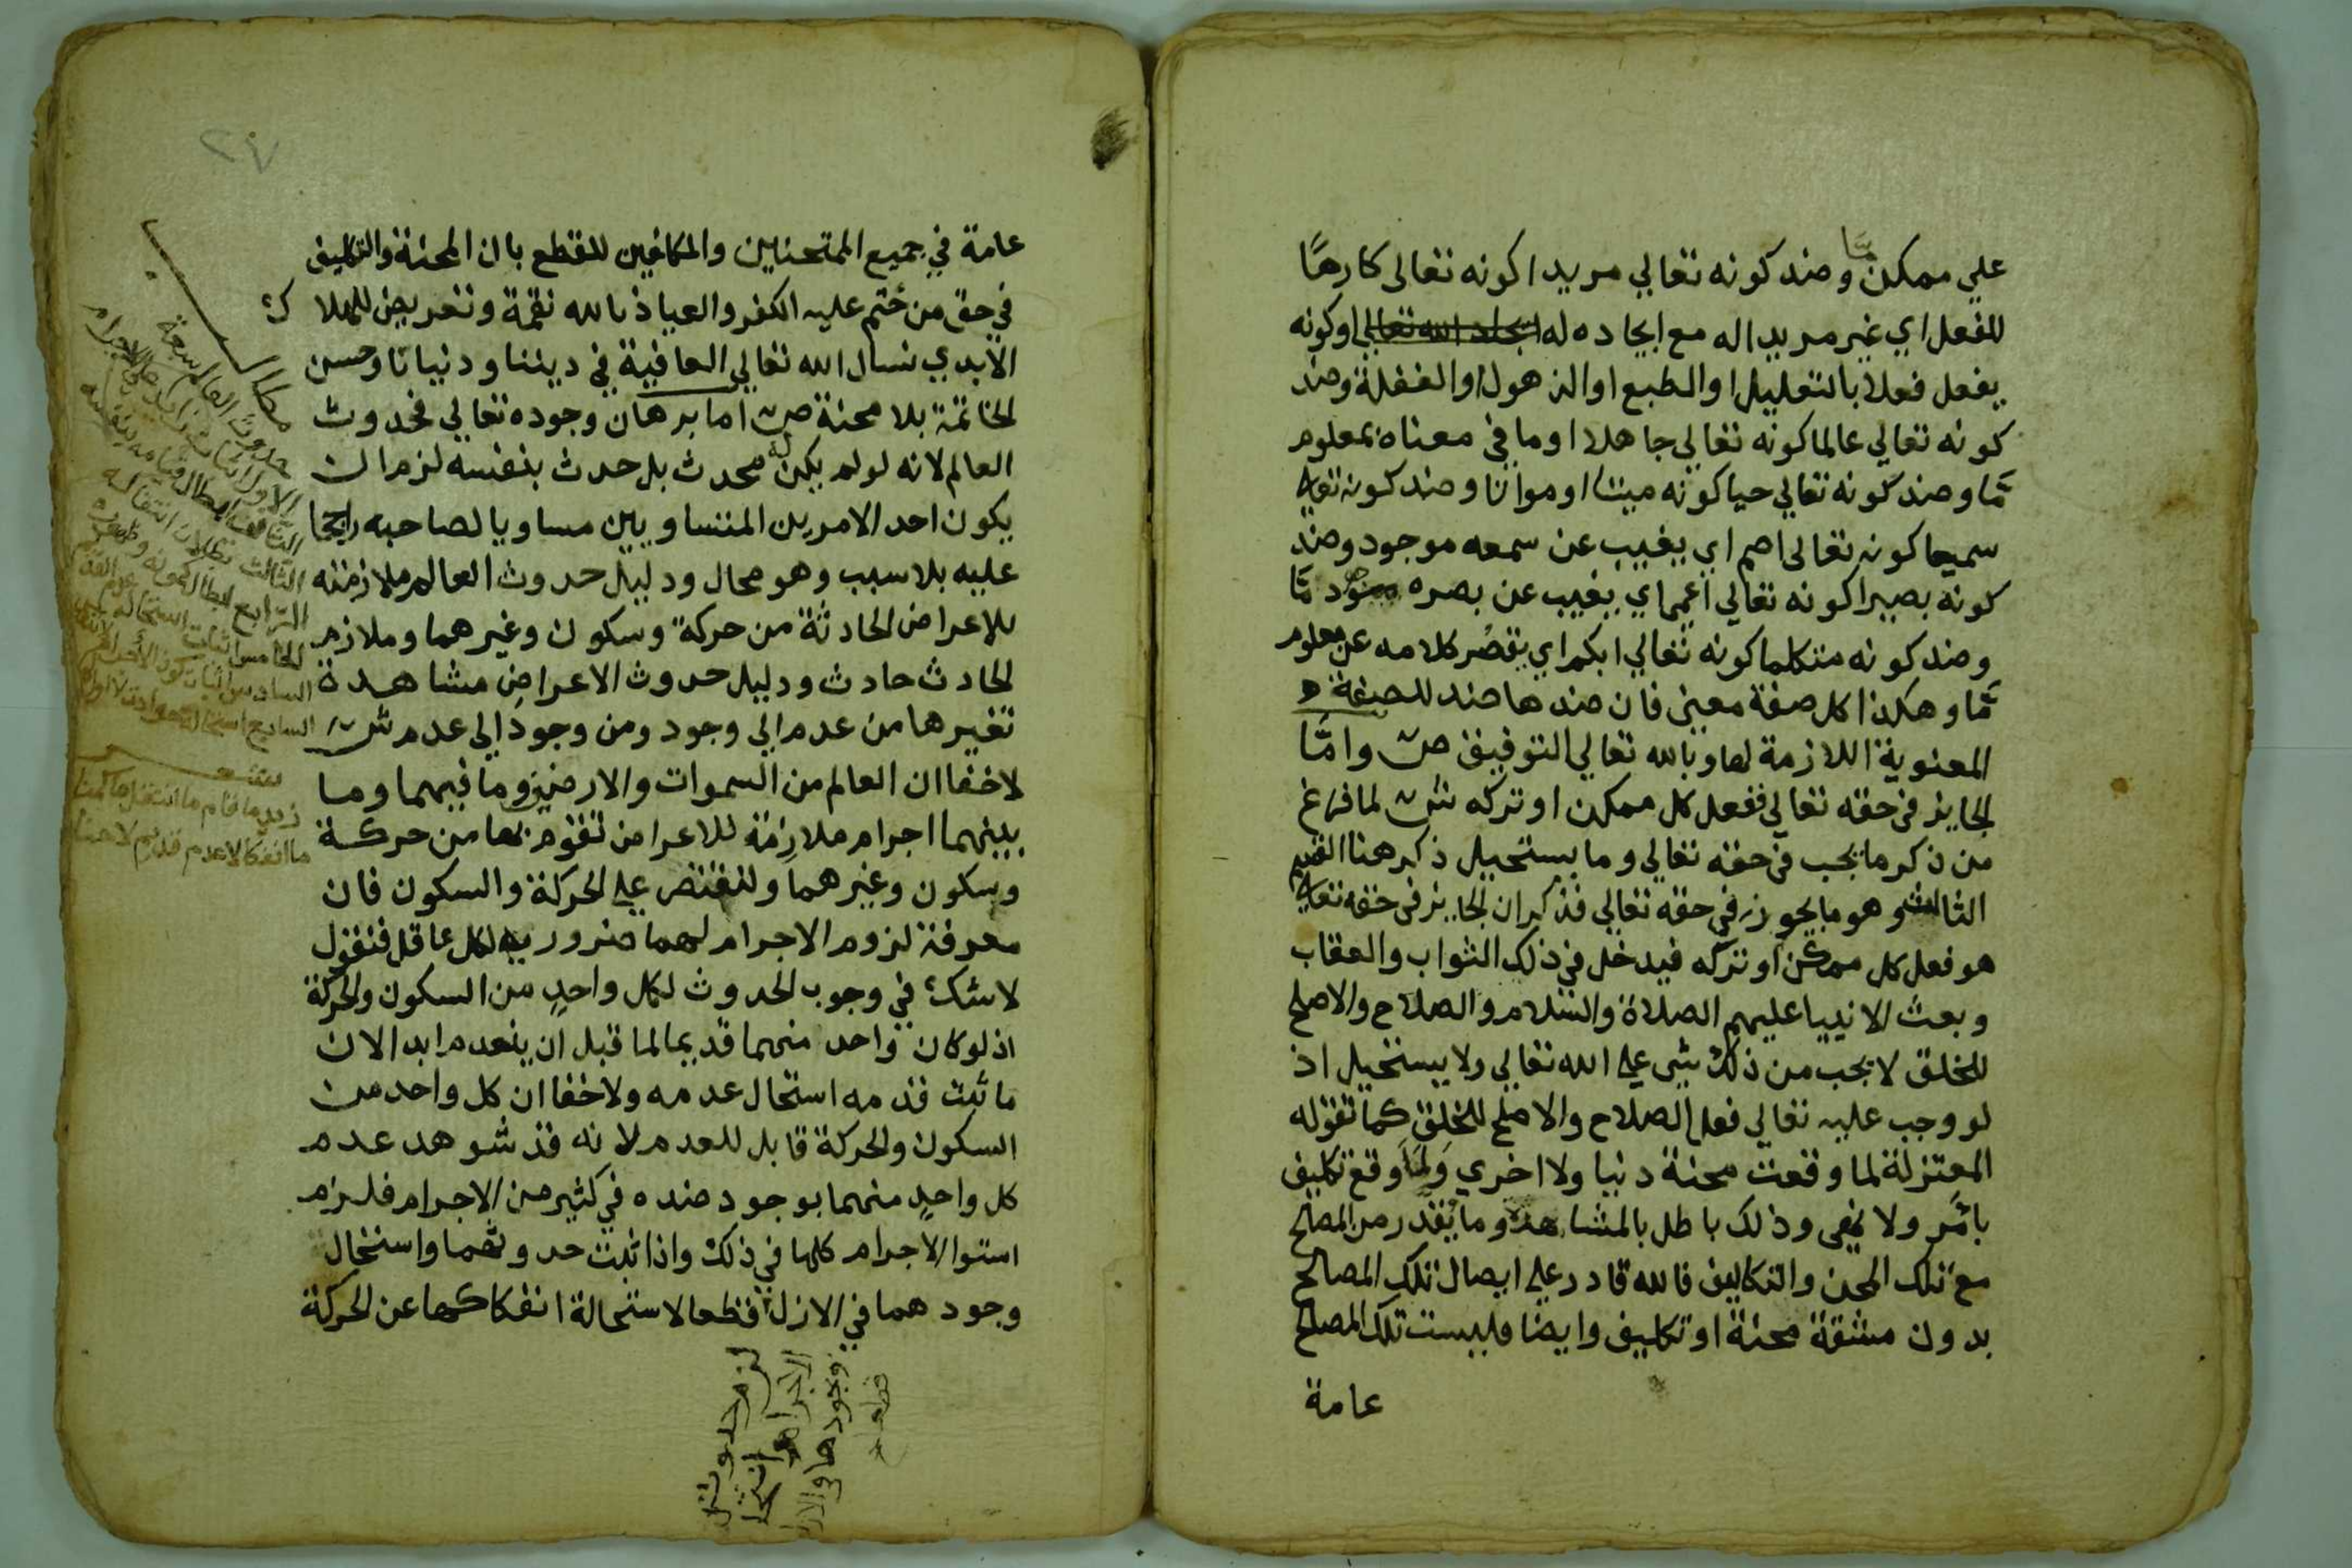 علي ممكن مّا وضد كونه تعالي مريدا كونه تعالى كارهًا
للفعل اي غير مريد اله مع ايجاده له ايجاد الله تعالى اوكونه
يفعل فعلا بالتعليل اوالطبع اوالذهول اوالغفلة وضد
كونه تعالي عالما كونه تعالي جاهلا اوما في معناه بمعلوم
مّا وضد كونه تعالي حيا كونه ميتا اومواتا وضد كونه تعالي
سميعا كونه تعالى اصم اي يغيب عن سمعه موجود وضد
كونه بصيرا كونه تعالي اعمي اي يغيب عن بصره موجود مّا
وضد كونه متكلما كونه تعالي ابكم اي يقصُر كلامه عن معلوم
مّا وهكذا كل صفة معني فان ضدها ضد للصفة
المعنوية اللازمة لها وبالله تعالي التوفيق ص وامّا
الجايز في حقه تعالي ففعل كل ممكن او تركه ش لما فرغ
من ذكر ما يجب في حقه تعالي وما يستحيل ذكر هنا القسم
الثالث وهو ما يجوز في حقه تعالي فذكر ان الجايز في حقه تعالي
هو فعل كل ممكن او تركه فيدخل في ذلك الثواب والعقاب
وبعث الانبيا عليهم الصلاة والسلام والصلاح والاصلح
للخلق لا يجب من ذلك شى علي الله تعالي ولا يستحيل اذ
لو وجب عليه تعالي فعل الصلاح والاصلح للخلق كما تقوله
المعتزلة لما وقعت محنة دنيا ولا اخري ولما وقع تكليف
بامر ولا نهى وذلك باطل بالمشاهدة وما يُقدَّر من المصالح
مع تلك المحن والتكاليف فالله قادر علي ايصال تلك المصالح
بدون مشقة محنة او تكليف وايضا فليست تلك المصالح
عامة
٢٧
عامة في جميع الممتحنين والمكلفين للقطع بان المحنة والتكليف
في حق من خُتم عليه الكفر والعياذ بالله نقمة وتعريض للهلاك
الابدي نسال الله تعالي العافية في ديننا ودنيانا وحسن
الخاتمة بلا محنة ص اما برهان وجوده تعالي فحدوث
العالم لانه لولم يكن له محدث بل حدث بنفسه لزم ان
يكون احد الامرين المتساويين مساويا لصاحبه راجحا
عليه بلا سبب وهو محال ودليل حدوث العالم ملازمته
للاعراض الحادثة من حركة وسكون وغيرهما وملازم
الحادث حادث ودليل حدوث الاعراض مشاهدة
تغيرها من عدم الي وجود ومن وجود الي عدم ش
لا خفا ان العالم من السموات والارضين وما فيهما وما
بينهما اجرام ملازمة للاعراض تقوم بها من حركة
وسكون وغيرهما ولنقتصر علي الحركة والسكون فان
معرفة لزوم الاجرام لهما ضرورية لكل عاقل فنقول
لا شك في وجوب الحدوث لكل واحدٍ من السكون والحركة
اذ لو كان واحد منهما قديما لما قبل ان ينعدم ابدا لان
ما ثبت قدمه استحال عدمه ولا خفا ان كل واحد من
السكون والحركة قابل للعدم لانه قد شوهد عدم
كل واحدٍ منهما بوجود ضده في كثير من الاجرام فلزم
استوا الاجرام كلها في ذلك واذا ثبت حدوثهما واستحال
وجودهما في الازل قطعا لاستحالة انفكاكها عن الحركة
مطالب
حدوث العالم سبعة
الثالث بطلان انتقاله
زيد ما قام ما انتقل ما كمنا
ما انفك لا عدم قديم لا حنا
لزم حدوث
الاجرام واستحال
وجودها في الازل
قطعا